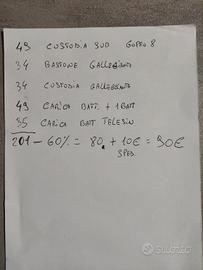 49 CUSTODIA SUB GOPRO 8
34 BASTONE GALLEGGIANTE
34 CUSTODIA GALLEGGIANTE
49 CARICA BATT. + 1 BATT
35 CARICA BATT TELESIN
201 - 60% = 80 + 10€ = 90€
SPED.
Subito